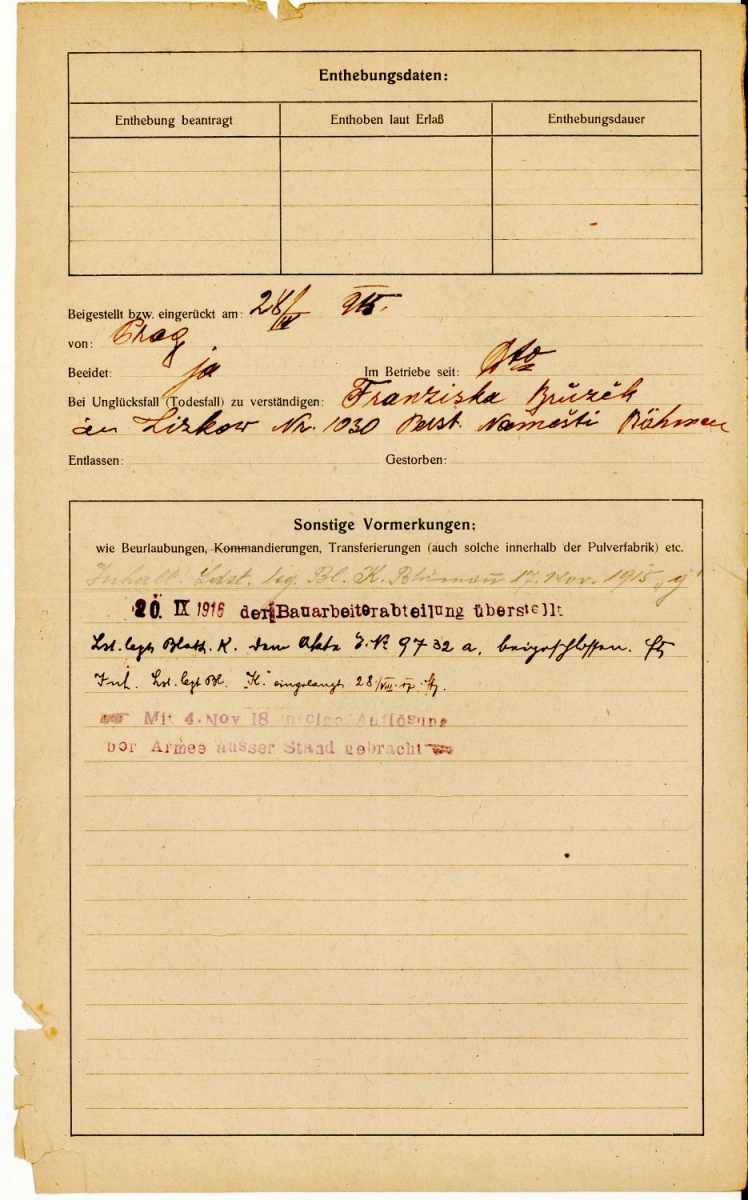 Enthebungsdaten:
Enthebung beantragt Enthoben laut Erlaß Enthebungsdauer
Beigestellt bzw. eingerückt am: 28/IV 915.
von: Prag
Beeidet: ja Im Betriebe seit: dto
Bei Unglücksfall (Todesfall) zu verständigen: Franziska
in Lizkow Nr. 1030 Náměsti Böhmen
Entlassen: Gestorben:
Sonstige Vormerkungen:
wie Beurlaubungen, Kommandierungen, Transferierungen (auch solche innerhalb der Pulverfabrik) etc.
Inhalt Ldst. lig. Bl. K. Blumau 17. Nov. 1915
20. IX 1916 der Bauarbeiterabteilung überstellt
Lst. legt Blatt. K. dem Akte E. № 9732 a, beigeschlossen.
Inh. Lst. legt Bl. "K." eingelangt 28/VIII.
Mit 4. Nov 18 Auflösung
Armee ausser Stand gebracht